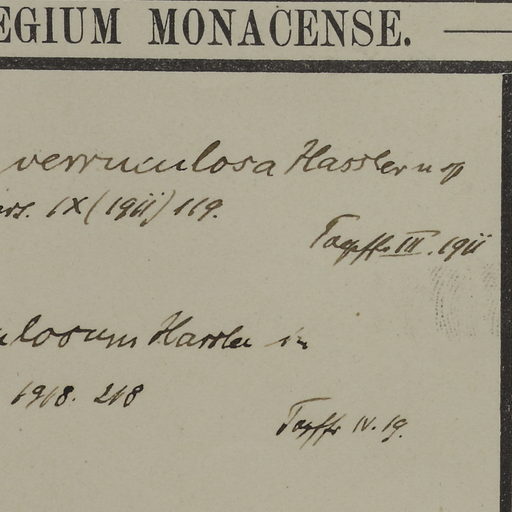 EGIUM MONACENSE.
verruculosa Hassler n sp
ers. IX (1911) 119.
Toepffer III. 1911
ulosum Hassler in
1918. 218
Toepffer IV. 19.